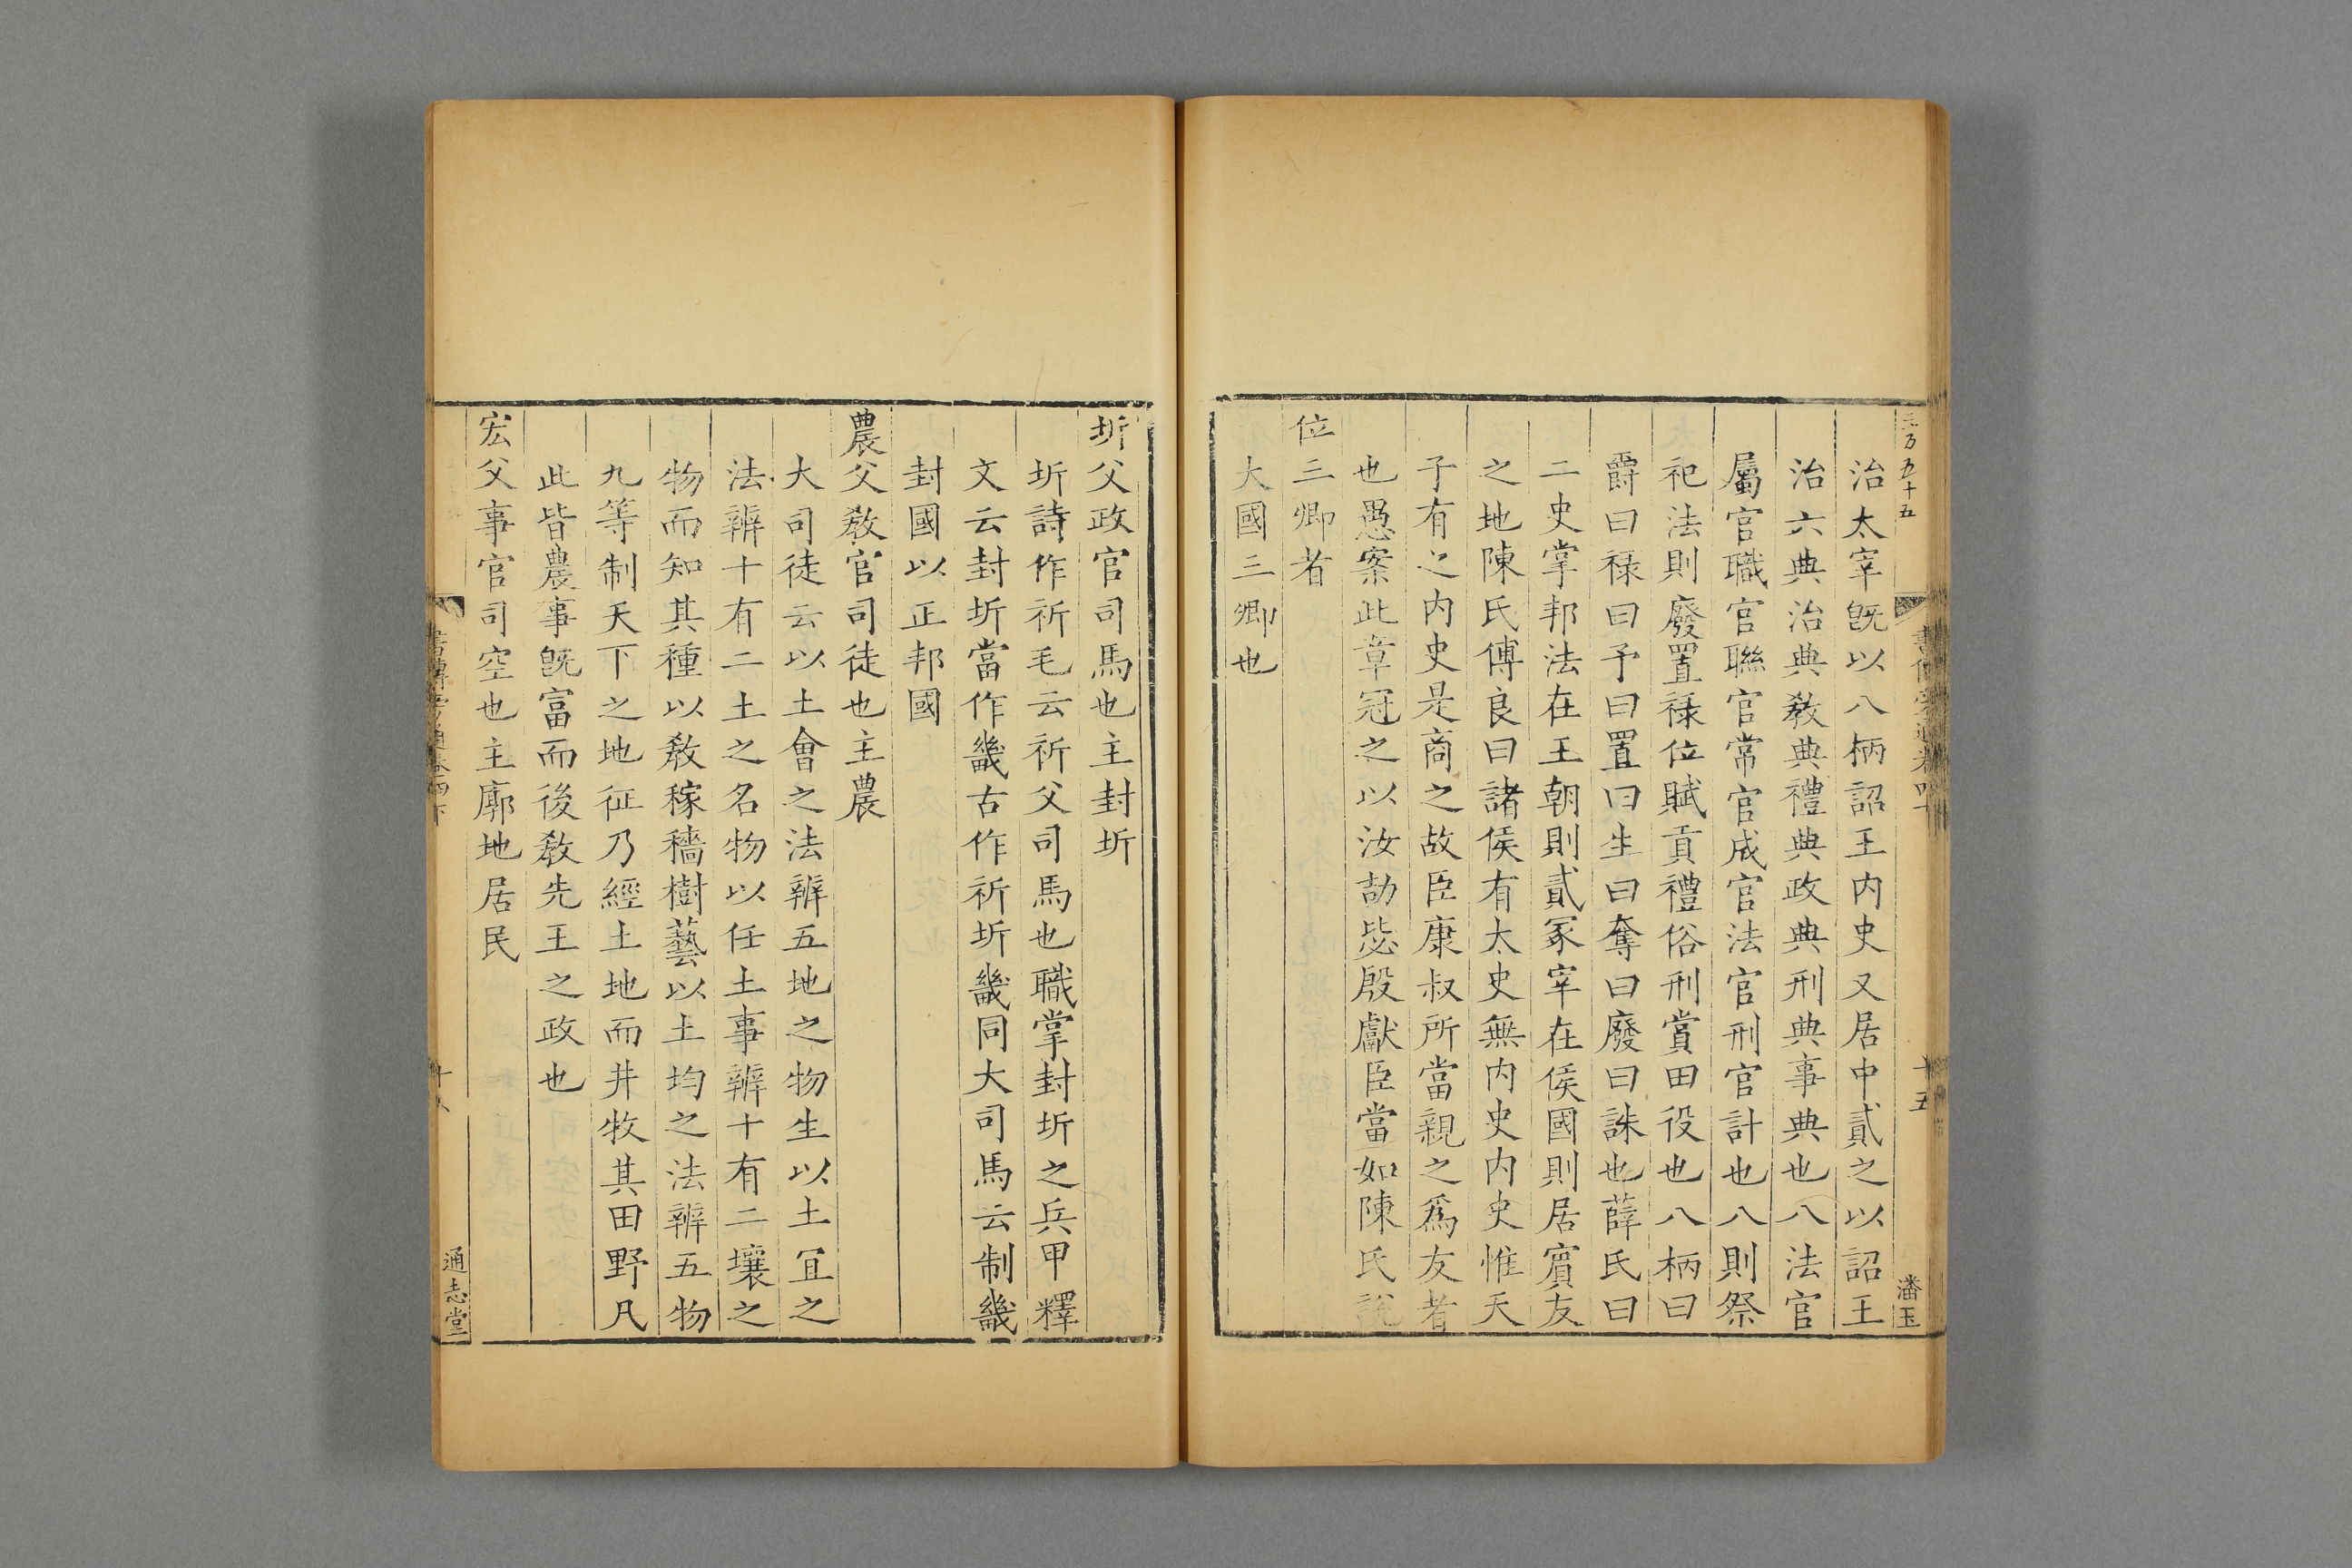 五十五
十五
潘玉
治太宰旣以八柄詔王内史又居中貳之以詔王
治六典治典敎典禮典政典刑典事典也八法官
屬官職官聯官常官成官法官刑官計也八則祭
祀法則廢置祿位賦貢禮俗刑賞田役也八柄曰
爵曰祿曰予曰置曰生曰奪曰廢曰誅也薛氏曰
二史掌邦法在王朝則貳冢宰在侯國則居賓友
之地陳氏傅良曰諸侯有太史無内史内史惟天
子有之内史是商之故臣康叔所當親之爲友者
也愚案此章冠之以汝劼毖殷獻臣當如陳氏說
位三卿者
大國三卿也
圻父政官司馬也主封圻
圻詩作祈毛云祈父司馬也職掌封圻之兵甲釋
文云封圻當作畿古作祈圻畿同大司馬云制畿
封國以正邦國
農父敎官司徒也主農
大司徒云以土會之法辨五地之物生以土宜之
法辨十有二土之名物以任土事辨十有二壤之
物而知其種以敎稼穡樹藝以土均之法辨五物
九等制天下之地征乃經土地而井牧其田野凡
此皆農事旣富而後敎先王之政也
宏父事官司空也主廓地居民
通志堂